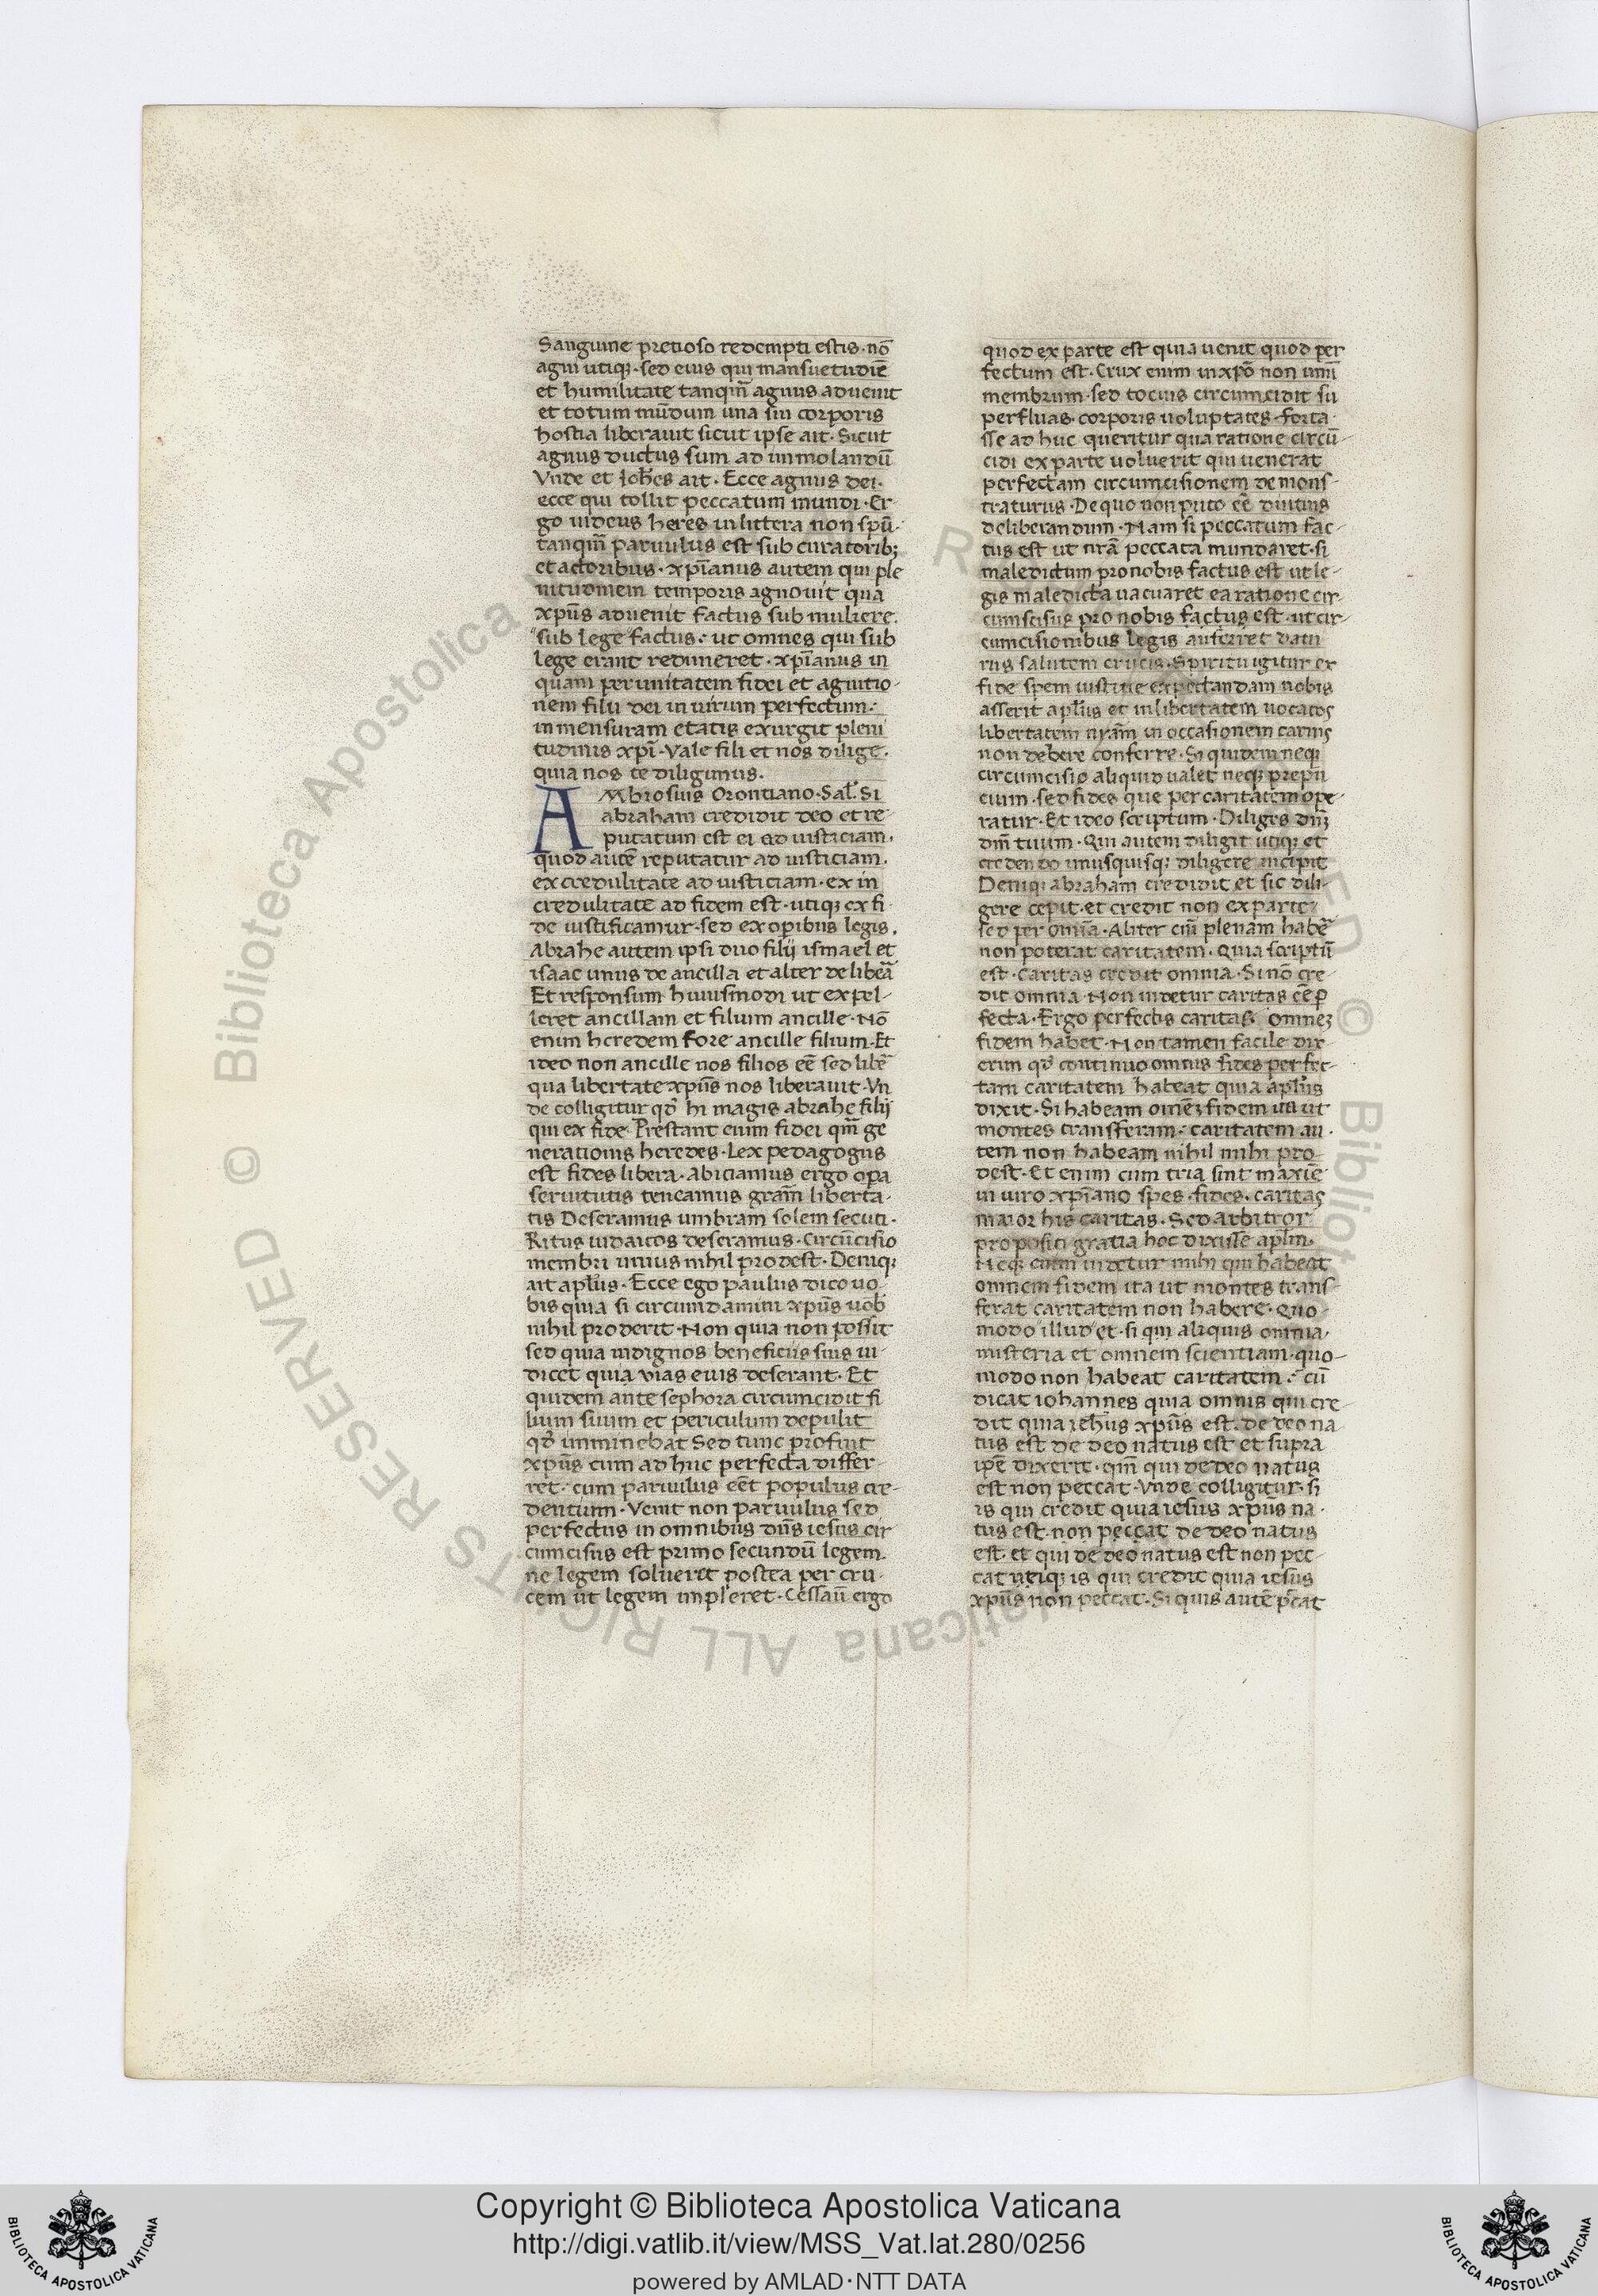 Sanguine pretioso redempti estis · nō
agni utiqꝫ · sed eius qui mansuetudīe
et humilitate tanqm̄ agnus aduenit
et totum mūdum una sui corporis
hostia liberauit sicut ipse ait · Sicut
agnus ductus sum ad immolandū
Vnde et Ioh̄es ait · Ecce agnus dei ·
ecce qui tollit peccatum mundi · Er-
go iudeus heres in littera non spū ·
tanqm̄ paruulus est sub curatoribꝫ
et actoribus · xp̄ianus autem qui ple
nitudinem temporis agnouit qua
xp̄us aduenit factus sub muliere.
sub lege factus : ut omnes qui sub
lege erant redimeret · xp̄ianus in
quam per unitatem fidei et agnitio-
nem filii dei in uirum perfectum :
in mensuram etatis exurgit pleni
tudinis xp̄i · Vale fili et nos dilige ·
quia nos te diligimus.
AMbrosius Orontiano · Sal̄. Si
abraham credidit deo et re-
putatum est ei ad iusticiam.
quod autē reputatur ad iusticiam.
ex credulitate ad iusticiam · ex in
credulitate ad fidem est · utiqꝫ ex fi
de iustificamur · sed ex opibus legis.
Abrahe autem ipsi duo filij ismael et
isaac unus de ancilla et alter de libeā
Et responsum huiusmodi ut expel-
leret ancillam et filium ancille · Nō
enim heredem fore ancille filium · Et
ideo non ancille nos filios eē sed libē
qua libertate xp̄us nos liberauit · Vn
de colligitur qd̄ hi magis abrahe filij
qui ex fide · Prestant enim fidei qm̄ ge
nerationis heredes · Lex pedagogus
est fides libera · Abiciamus ergo opa
seruitutis teneamus gram̄ liberta-
tis Deseramus umbram solem secuti ·
Ritus iudaicos deseramus · Circūcisio
membri unius nihil prodest · Deniqꝫ
ait apl̄us · Ecce ego paulus dico uo
bis quia si circumdamini xp̄us uob̄
nihil proderit · Non quia non possit
sed quia indignos beneficiis suis iu-
dicet quia uias eius deserant · Et
quidem ante sephora circumcidit fi
lium suum et periculum depulit
qd̄ imminebat Sed tunc profuit
xp̄us cum ad huc perfecta differ-
ret · cum paruulus eēt populus cre-
dentium · Venit non paruulus sed
perfectus in omnibus dn̄s iesus cir
cumcisus est primo secundū legem
ne legem solueret postea per cru-
cem ut legem impleret · Cessau̅ ergo
quod ex parte est quia uenit quod per
fectum est · Crux enim in xp̄o non unū
membrum · sed tocius circumcidit su
perfluas · corporis uoluptates · Forta
sse ad huc queritur qua ratione circū-
cidi ex parte uoluerit qui uenerat
perfectam circumcisionem demons-
traturus · De quo non puto eē diutius
deliberandum · Nam si peccatum fac-
tus est ut nrā peccata mundaret · si
maledictum pro nobis factus est ut le-
gis maledicta uacuaret ea ratione cir-
cumscisus pro nobis factus est · ut cir-
cumcisionibus legis auferret datu
rus salutem crucis · Spiritu igitur ex
fide spem iustitie expectandam nobis
asserit apl̄us et in libertatem uocatos
libertatem nrām in occasionem carnis
non debere conferre · Si quidem neqꝫ
circumcisio aliquid ualet neqꝫ prepu
cium · sed fides que per caritatem ope-
ratur · Et ideo scriptum · Diliges dn̄ꝫ
dm̄ tuum · Qui autem diligit utiqꝫ et
credendo unusquisqꝫ diligere incipit
Deniqꝫ abraham credidit et sic dili-
gere cepit · et credit non ex parte ·
sed per omīa · Aliter enī plenam habē
non poterat caritatem · Quia scriptū
est · Caritas credit omnia · Si nō cre-
dit omnia Non uidetur caritas eē p
fecta · Ergo perfectis caritas · omneꝫ
fidem habet · Non tamen facile dix-
erim qd̄ continuo omnis fides perfec-
tam caritatem habeat quia apl̄us
dixit · Si habeam omēꝫ fidem ita ut
montes transferam : caritatem au.
tem non habeam nihil mihi pro-
dest · Et enim cum tria sint maxīe
in uiro xp̄iano spes · fides · caritas
maior his caritas · Sed arbitror
propositi gratia hoc dixisse apl̄m ·
Neqꝫ enim uidetur mihi qui habeat
omnem fidem ita ut montes trans-
ferat caritatem non habere · Quo-
modo illud et · si qui aliquis omnia
misteria et omnem scientiam · quo-
modo non habeat caritatem : cū
dicat iohannes quia omnis qui cre-
dit quia iehus xp̄us est · de deo na
tus est de deo natus est et supra
ipē dixerit · qm̄ qui de deo natus
est non peccat · Vnde colligitur · si
is qui credit quia iesus xpus na ·
tus est · non peccat de deo natus
est · et qui de deo natus est non pec-
cat utiqꝫ is qui credit quia iesus
xp̄us non peccat · Si quis autē p̄cat
© Biblioteca Apostolica Vaticana ALL RIGHTS RESERVED
Copyright © Biblioteca Apostolica Vaticana
http://digi.vatlib.it/view/MSS_Vat.lat.280/0256
powered by AMLAD · NTT DATA
BIBLIOTECA APOSTOLICA VATICANA
BIBLIOTECA APOSTOLICA VATICANA